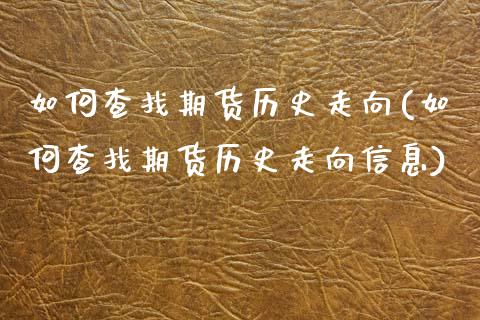 如何查找期货历史走向(如
何查找期货历史走向信息)